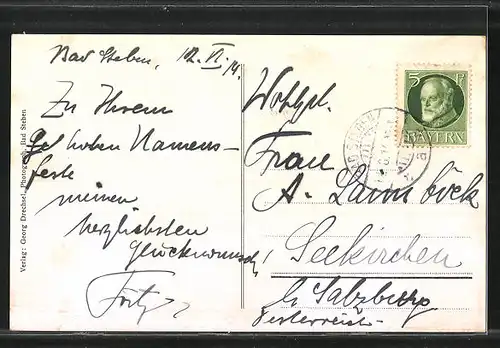 Bad Steben, 12. VI. 14.
Zu Ihrem
hohen Namens-
feste
meinen
herzlichsten
Glückwunsch!
Fritz
Wohlgb.
Frau
A. Laimböck
Seekirchen
b/ Salzburg
Oesterreich
5 Pf
BAYERN
Verlag: Georg Drechsel, Photograph, Bad Steben